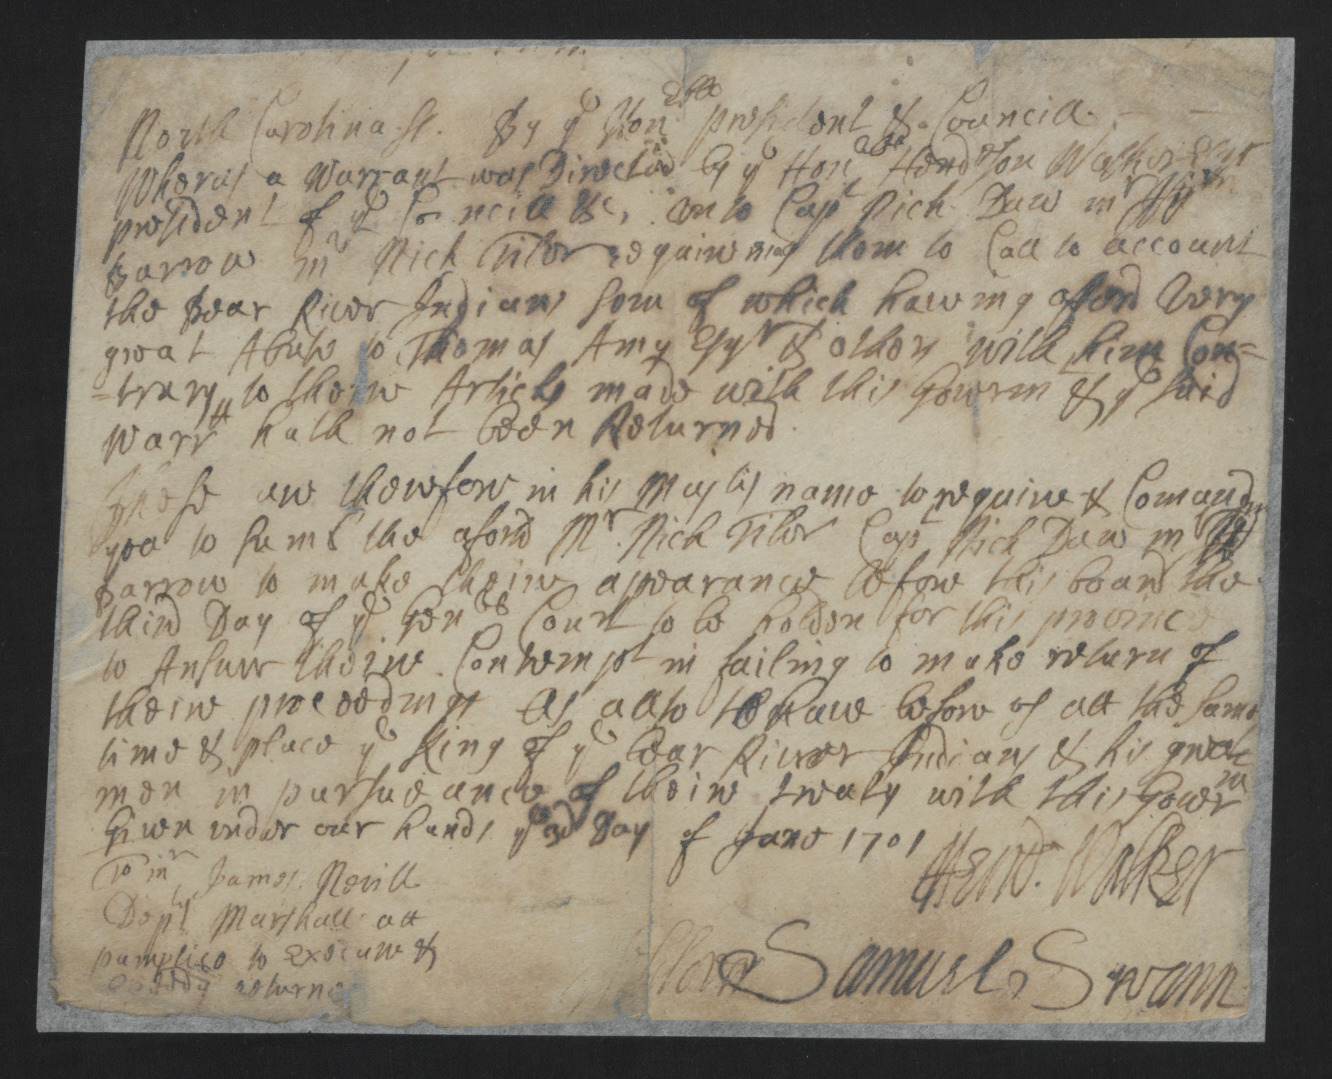 North Carolina ss. By ye Honble president & Councill
Wheras a Warrant was Directed by ye Honable Henderson Walker Esqr
president of ye Councill &c, unto Capt Rich Daw mr Wm
Barrow mr Rich Tiler requireing them to Call to account
the Bear River Indians som of which haweing offerd Very
great Abuse to Thomas Amy Esqr & others with him Con=
=trary to theire Articles made with this Goverm & ye said
Warrtt hath not been Returned
These are therefore in his Majtis name to require & Comand
you to sums the aforsd Mr. Rich Tiler Capt Rich Daw mr Wm
Barrow to make theire appearance before this board the
third Day of ye Genll Court to be holden for this province
to Answer theire Contempt in failing to make return of
theire proceedings As allso to have before us att the same
time & place ye King of ye bear River Indians & his great
men in pursueance of theire treaty with this Goverm
Given under our hands ye 3d Day of June 1701
Hend. Walker
To mr James Nevill
Depty Marshall att
pamplico to Execute &
returne
Samuel Swann